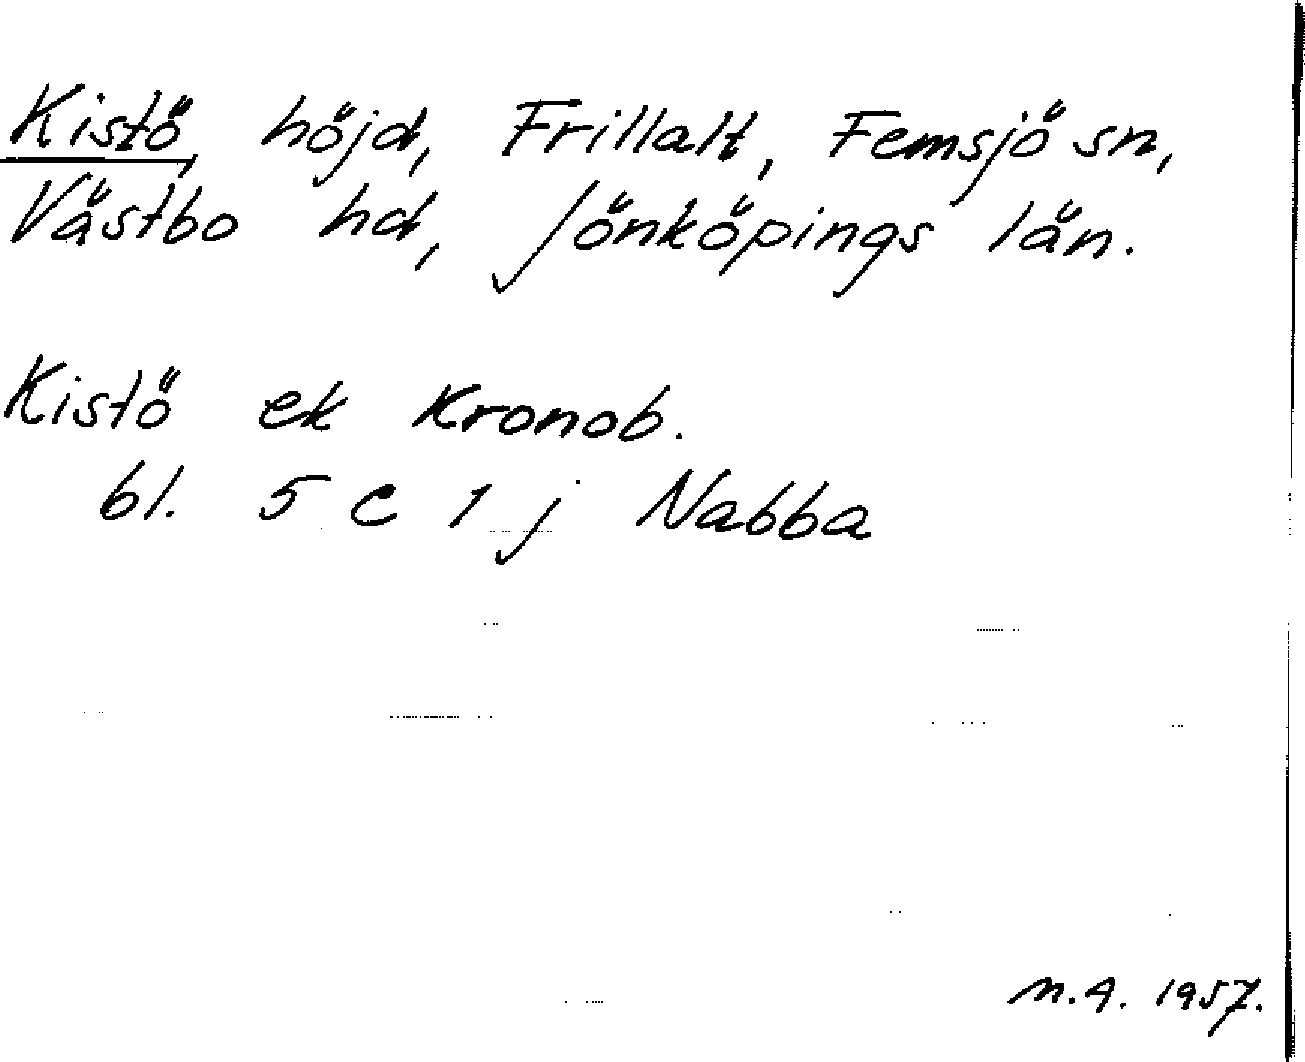 Kistö, höjd, Frillalt, Femsjö sn,
Västbo hd, Jönköpings län.
Kistö ek Kronob.
bl. 5 C 1 j Nabba
M.A. 1957.